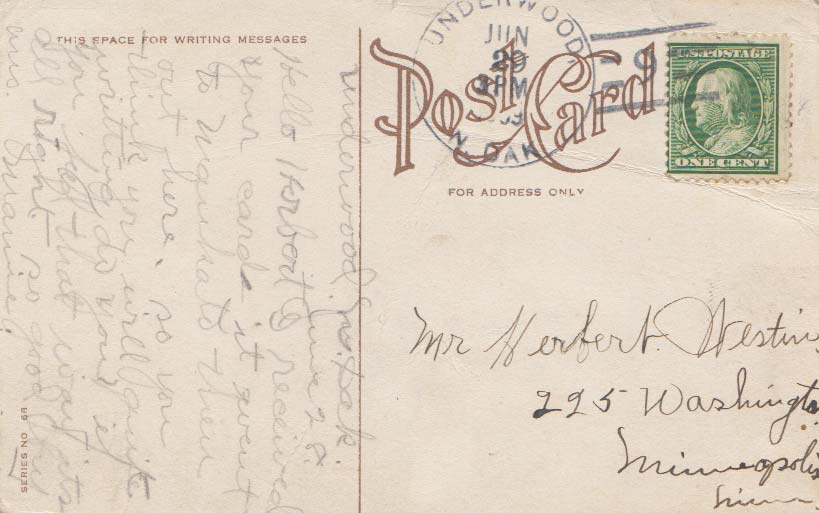 THIS SPACE FOR WRITING MESSAGES
Underwood, N. Dak.
June 28.
Hello Herbert I received
your card it went
to then
out here, so you
think you will quit
writting do you, if
you feel that way its
all right so good
Mamie.
ans.
SERIES NO 68
UNDERWOOD,
JUN
29
3PM
09
N. DAK.
Post Card
FOR ADDRESS ONLY
U.S. POSTAGE
ONE CENT
Mr Herbert Westin
225 Washingt
Minneapolis
Minn